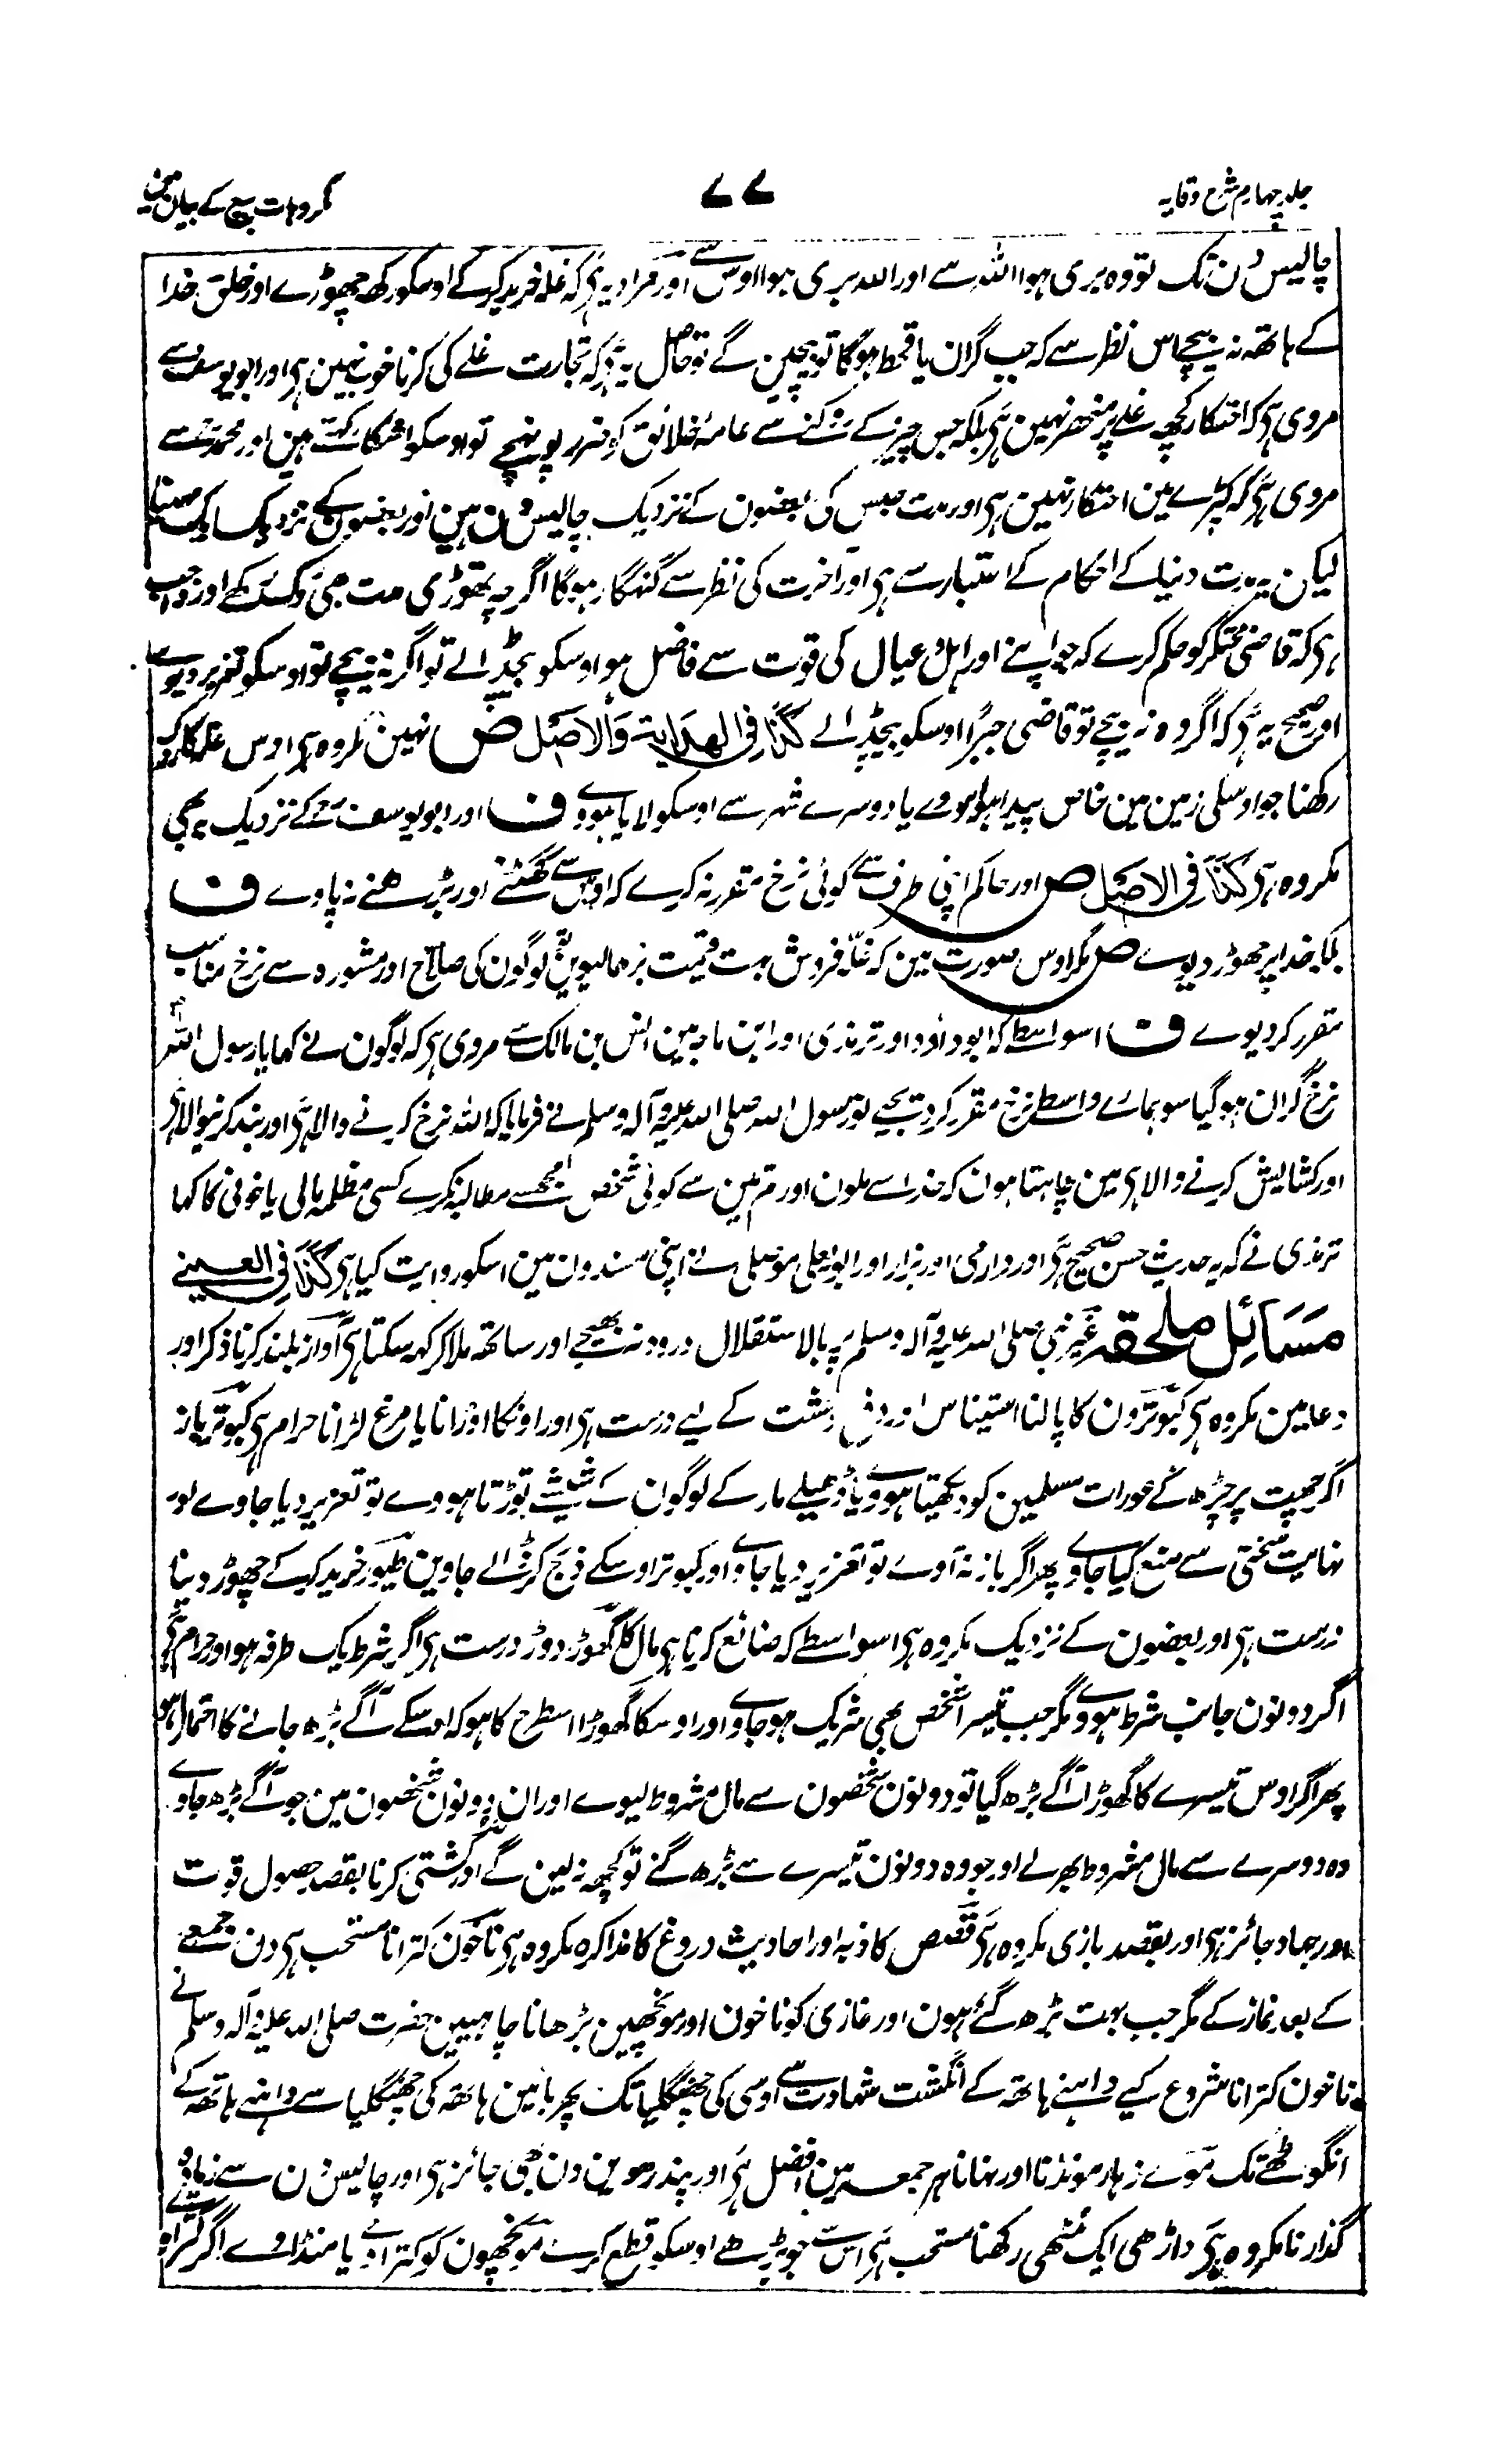 جلد چہارم شرح وقایہ
۷۷
مکروہات بیع کے بیان میں
چالیس دن تک تو وہ بری ہوا اللہ سے اور اللہ بری ہوا اوس سے اور مراد یہ ہی کہ غلہ خرید کرکے اوسکو رکھ چھوڑے اور خلق خدا
کے ہاتھ نہ بیچے اس نظر سے کہ جب گران یا قحط ہوگا تو بیچین گے تو حاصل یہ ہی کہ تجارت غلے کی کرنا خوب نہین ہی اور ابو یوسف سے
مروی ہی کہ احتکار کچھ غلے پر منحصر نہین ہی بلکہ جس چیز کے روکنے سے عامۂ خلائق کو ضرر پونہچے تو اوسکو احتکار کہتے ہین اور محمدؒ سے
مروی ہی کہ کپڑے مین احتکار نہین ہی اور مدت حبس کی بعضون کے نزدیک چالیس دن ہین اور بعضون کے نزدیک ایک مہینا
لیکن یہ مدت دنیا کے احکام کے اعتبار سے ہی اور آخرت کی نظر سے گنہگار ہوگا اگرچہ تھوڑی مدت بھی روک رکھے اور واجب
ہی کہ قاضی محتکر کو حکم کرے کہ جو اپنے اور اہل و عیال کی قوت سے فاضل ہو اوسکو بیچ ڈالے تو اگر نہ بیچے تو اوسکو تعزیر دیوے
اور صحیح یہ ہی کہ اگر وہ نہ بیچے تو قاضی جبراً اوسکو بیچ ڈالے کذا فی الھدایۃ والاصل ص نہین مکروہ ہی اوس غلہ کا روک
رکھنا جو اوسکی زمین مین خاص پیدا ہوا ہووے یا دوسرے شہر سے اوسکو لایا ہووے ف اور ابو یوسفؒ کے نزدیک یہ بھی
مکروہ ہی کذا فی الاصل ص اور حاکم اپنی طرف سے کوئی نرخ مقرر نہ کرے کہ اوس سے گھٹنے اور بڑھنے نہ پاوے ف
بلکہ خدا پر چھوڑ دیوے ص مگر اوس صورت مین کہ غلہ فروش بہت قیمت بڑھا لیوین تو لوگون کی صلاح اور مشورہ سے نرخ مناسب
مقرر کر دیوے ف اسواسطے کہ ابو داؤد اور ترمذی اور ابن ماجہ مین انس بن مالک سے مروی ہی کہ لوگون نے کہا یا رسول اللہ
نرخ گران ہو گیا سو ہمارے واسطے نرخ مقرر کر دیجیے تو رسول اللہ صلی اللہ علیہ وآلہ وسلم نے فرمایا کہ اللہ نرخ کرنے والا ہی اور بند کرنیوالا ہی
اور کشایش کرنے والا ہی مین چاہتا ہون کہ خدا سے ملون اور تم مین سے کوئی شخص مجھسے مطالبہ نکرے کسی مظلمہ مالی یا خونی کا کہا
ترمذی نے کہ یہ حدیث حسن صحیح ہی اور دارمی اور بزار اور ابو یعلی موصلی نے اپنی مسندون مین اسکو روایت کیا ہی کذا فی العینی
مسائل ملحقہ غیر نبی صلی اللہ علیہ وآلہ وسلم پر بالاستقلال درود نہ بھیجے اور ساتھ ملا کر کہہ سکتا ہی آواز بلند کرنا ذکر اور
دعا مین مکروہ ہی کبوترون کا پالنا استیناس اور دفع وحشت کے لیے درست ہی اور اونکا اوڑانا یا مرغ لڑانا حرام ہی کبوتر باز
اگر چھت پر چڑھ کے عورات مسلمین کو دیکھتا ہووے یا ڈھیلے مار کے لوگون کے شیشے توڑتا ہووے تو تعزیر دیا جاوے اور
نہایت سختی سے منع کیا جاوے پھر اگر باز نہ آوے تو تعزیر دیا جاوے اور کبوتر اوسکے ذبح کر ڈالے جاوین طیور خرید کرکے چھوڑ دینا
درست ہی اور بعضون کے نزدیک مکروہ ہی اسواسطے کہ ضائع کرنا ہی مال کا گھوڑ دوڑ درست ہی اگر شرط یک طرفہ ہو اور حرام ہی
اگر دونون جانب شرط ہووے مگر جب تیسرا شخص بھی شریک ہو جاوے اور اوسکا گھوڑا اسطرح کا ہو کہ اوسکے آگے بڑھ جانے کا احتمال ہو
پھر اگر اوس تیسرے کا گھوڑا آگے بڑھ گیا تو دونون شخصون سے مال مشروط لیوے اور ان دونون شخصون مین جو آگے بڑھ جاوے
وہ دوسرے سے مال مشروط پھر لے اور جو وہ دونون تیسرے سے بڑھ گئے تو کچھ نہ لین گے اور کشتی کرنا بقصد حصول قوت
اور جہاد جائز ہی اور بقصد بازی مکروہ ہی قصص کاذبہ اور احادیث دروغ کا مذاکرہ مکروہ ہی ناخون کترانا مستحب ہی دن جمعے
کے بعد نماز کے مگر جب بہت بڑھ گئے ہون اور غازی کو ناخون اور مونچھین بڑھانا چاہیین حضرت صلی اللہ علیہ وآلہ وسلم نے
ناخون کترانا شروع کیے داہنے ہاتھ کے انگشت شہادت سے اوسی کی چھنگلیا تک پھر بائین ہاتھ کی چھنگلیا سے داہنے ہاتھ کے
انگوٹھے تک موے زہار مونڈنا اور نہانا ہر جمعہ مین افضل ہی اور پندرھوین دن بھی جائز ہی اور چالیس دن سے زیادہ
گذارنا مکروہ ہی داڑھی ایک مٹھی رکھنا مستحب ہی اس سے جو بڑھے اوسکو قطع کرے مونچھون کو کتراوے یا منڈاوے اگر کتراوے